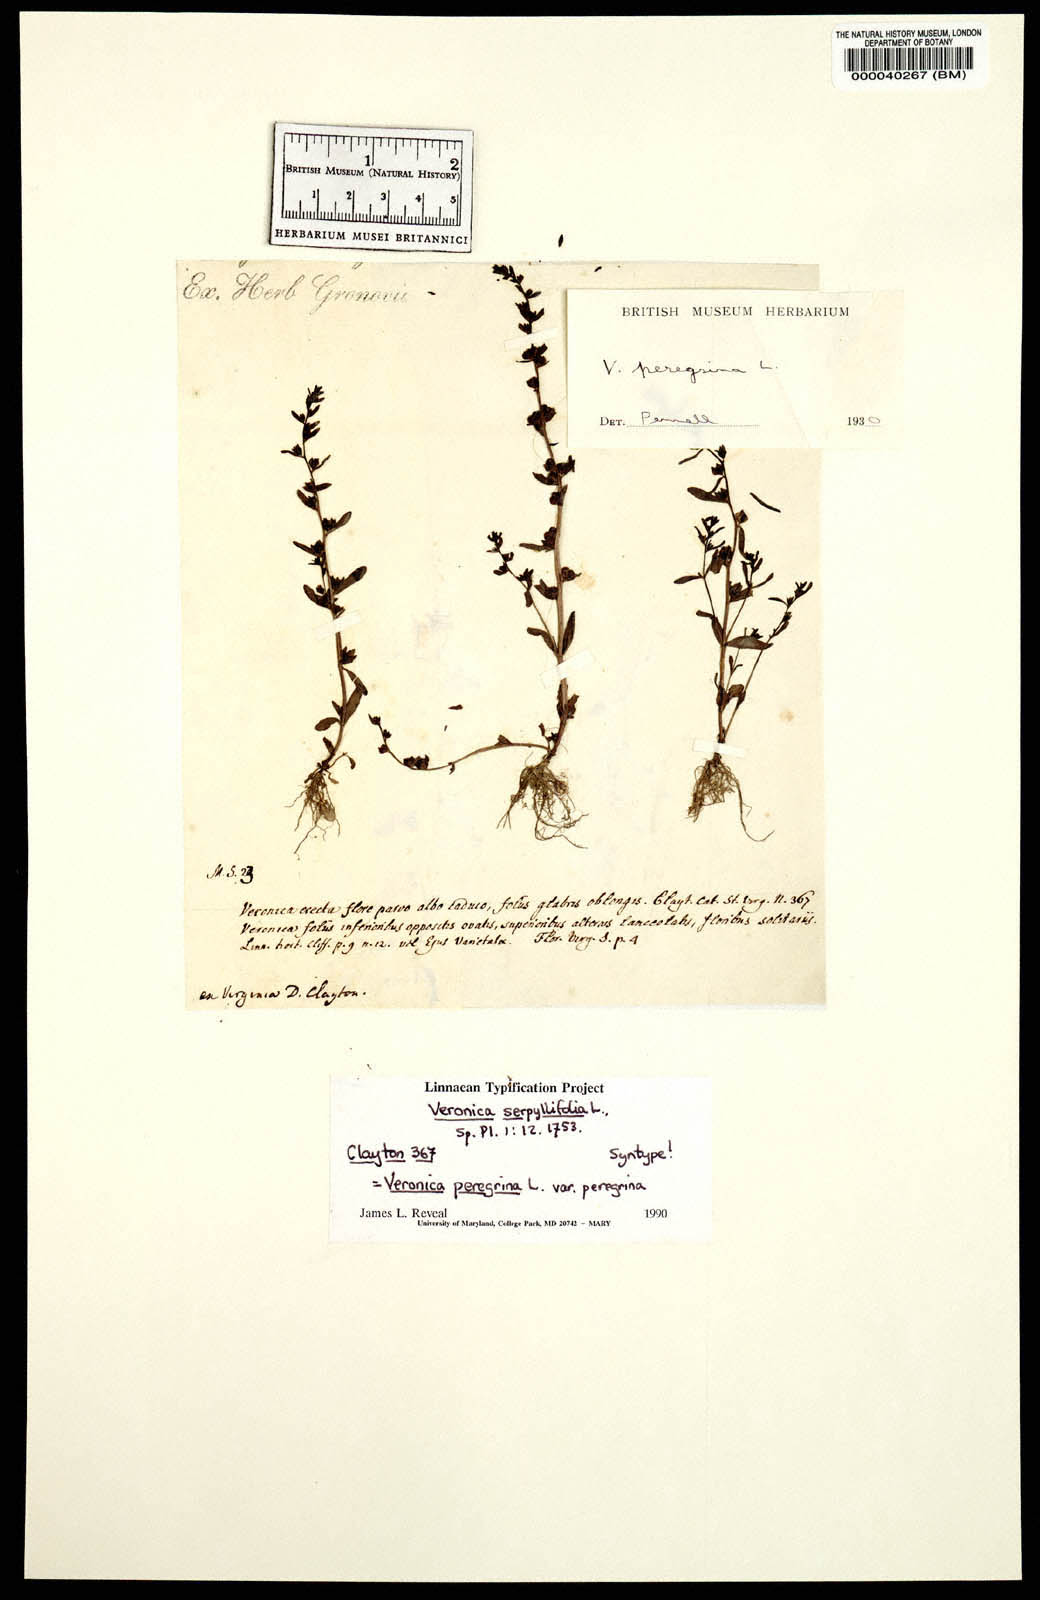 THE NATURAL HISTORY MUSEUM, LONDON
DEPARTMENT OF BOTANY
000040267 (BM)
1 2
BRITISH MUSEUM (NATURAL HISTORY)
1 2 3 4 5
HERBARIUM MUSEI BRITANNICI
Ex. Herb Gronovii -
BRITISH MUSEUM HERBARIUM
V. peregrina L.
DET. Pennell 1930
M.S. 23
Veronica erecta flore parvo albo caduco, foliis glabris oblongis. Clayt. Cat. St. Virg. N. 367
Veronica foliis inferioribus oppositis ovatis, superioribus alternis lanceolatis, floribus solitariis.
Linn. hort. Cliff. p. 9 n. 12. vel Ejus Varietates. Flor. Virg. I. p. 4
en Virginia D. Clayton.
Linnaean Typification Project
Veronica serpyllifolia L.,
Sp. Pl. 1: 12. 1753.
Clayton 367 Syntype!
= Veronica peregrina L. var. peregrina
James L. Reveal 1990
University of Maryland, College Park, MD 20742 – MARY